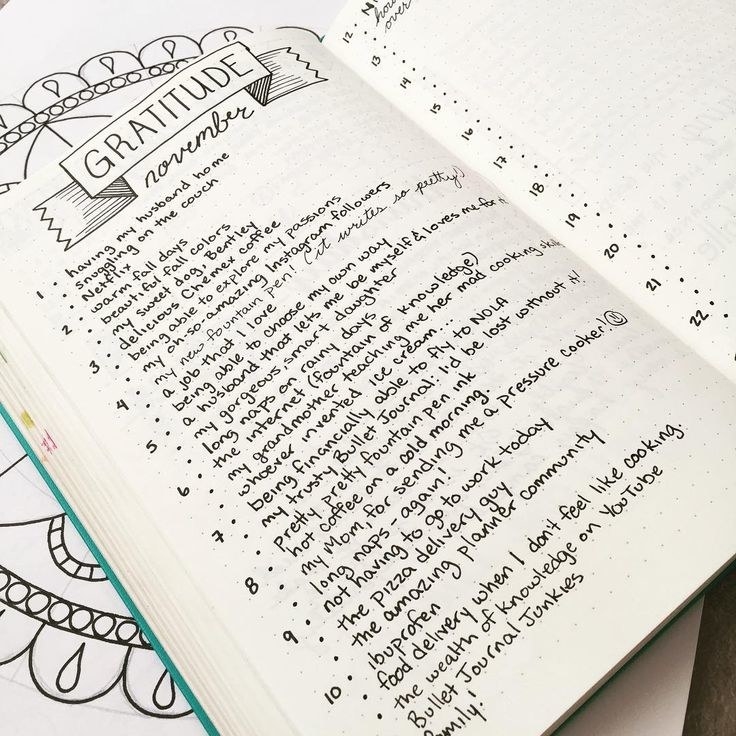 GRATITUDE
november
1 • having my husband home
• snuggling on the couch
• Netflix
2 • warm fall days
• beautiful fall colors
• my sweet dog, Bentley
3 • delicious Chemex coffee
• being able to explore my passions
• my oh-so-amazing Instagram followers
4 • my new fountain pen! (it writes so pretty!)
• a job that I love
• being able to choose my own way
5 • a husband that lets me be myself & loves me for it
• my gorgeous smart daughter
• long naps on rainy days
6 • the internet (fountain of knowledge)
• my grandmother teaching me her mad cooking skills
• whoever invented ice cream...
7 • being financially able to fly to NOLA
• my trusty Bullet Journal! I'd be lost without it!
• pretty pretty fountain pen ink
8 • hot coffee on a cold morning
• my Mom, for sending me a pressure cooker!
• long naps - again!
9 • not having to go to work today
• the pizza delivery guy
• the amazing planner community
10 • ibuprofen
• food delivery when I don't feel like cooking.
• the wealth of knowledge on YouTube
• Bullet Journal Junkies
family!
12
over
13
14
15
16
17
18
19
20
21
22